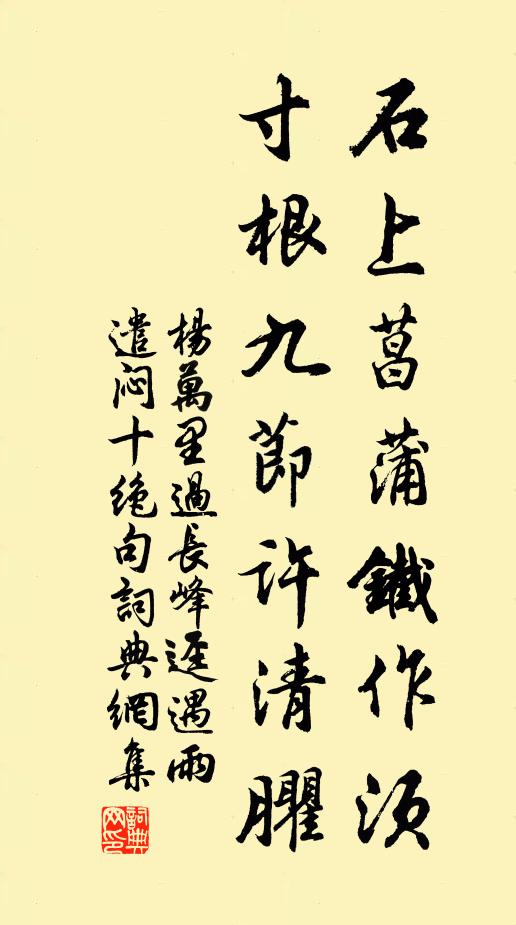 石上菖蒲鐵作須
寸根九節許清臞
楊萬里過長峰逕遇雨
遣悶十絶句詞典網集
詞典網印